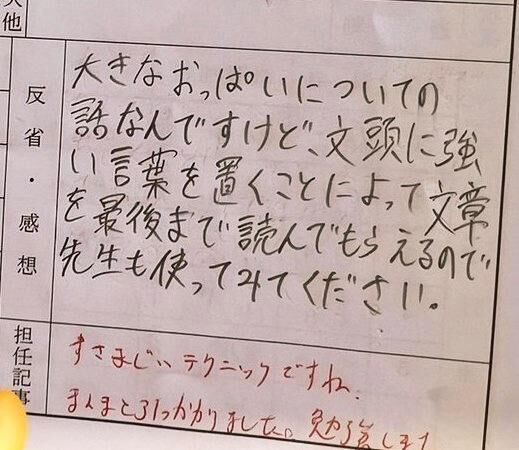 他
反省・感想
大きなおっぱいについての
話なんですけど、文頭に強
い言葉を置くことによって文章
を最後まで読んでもらえるので
先生も使ってみてください。
担任記事
すさまじいテクニックですね。
まんまと引っかかりました。勉強します